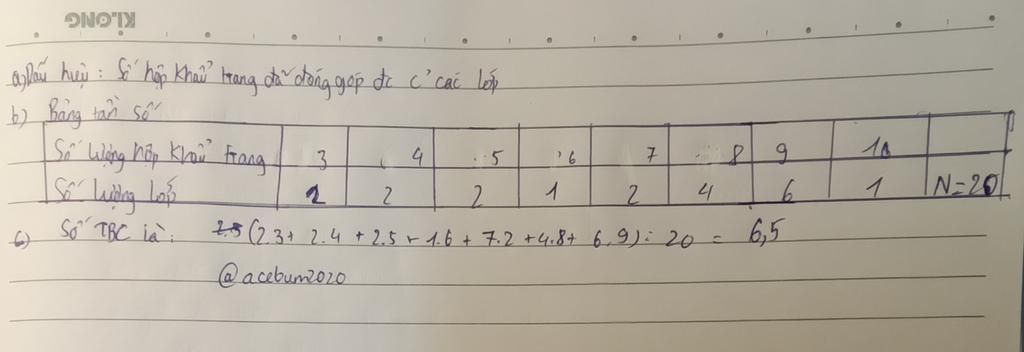 KLONG
a) Dấu hiệu: Số hộp khẩu trang đã đóng góp đc c' các lớp
b) Bảng tần số
Số lượng hộp khẩu trang 3 4 5 6 7 8 9 10
Số lượng lớp 2 2 2 1 2 4 6 1 N=20
c) Số TBC là: (2.3+ 2.4 + 2.5 + 1.6 + 7.2 +4.8+ 6.9): 20 = 6,5
@acebum2020